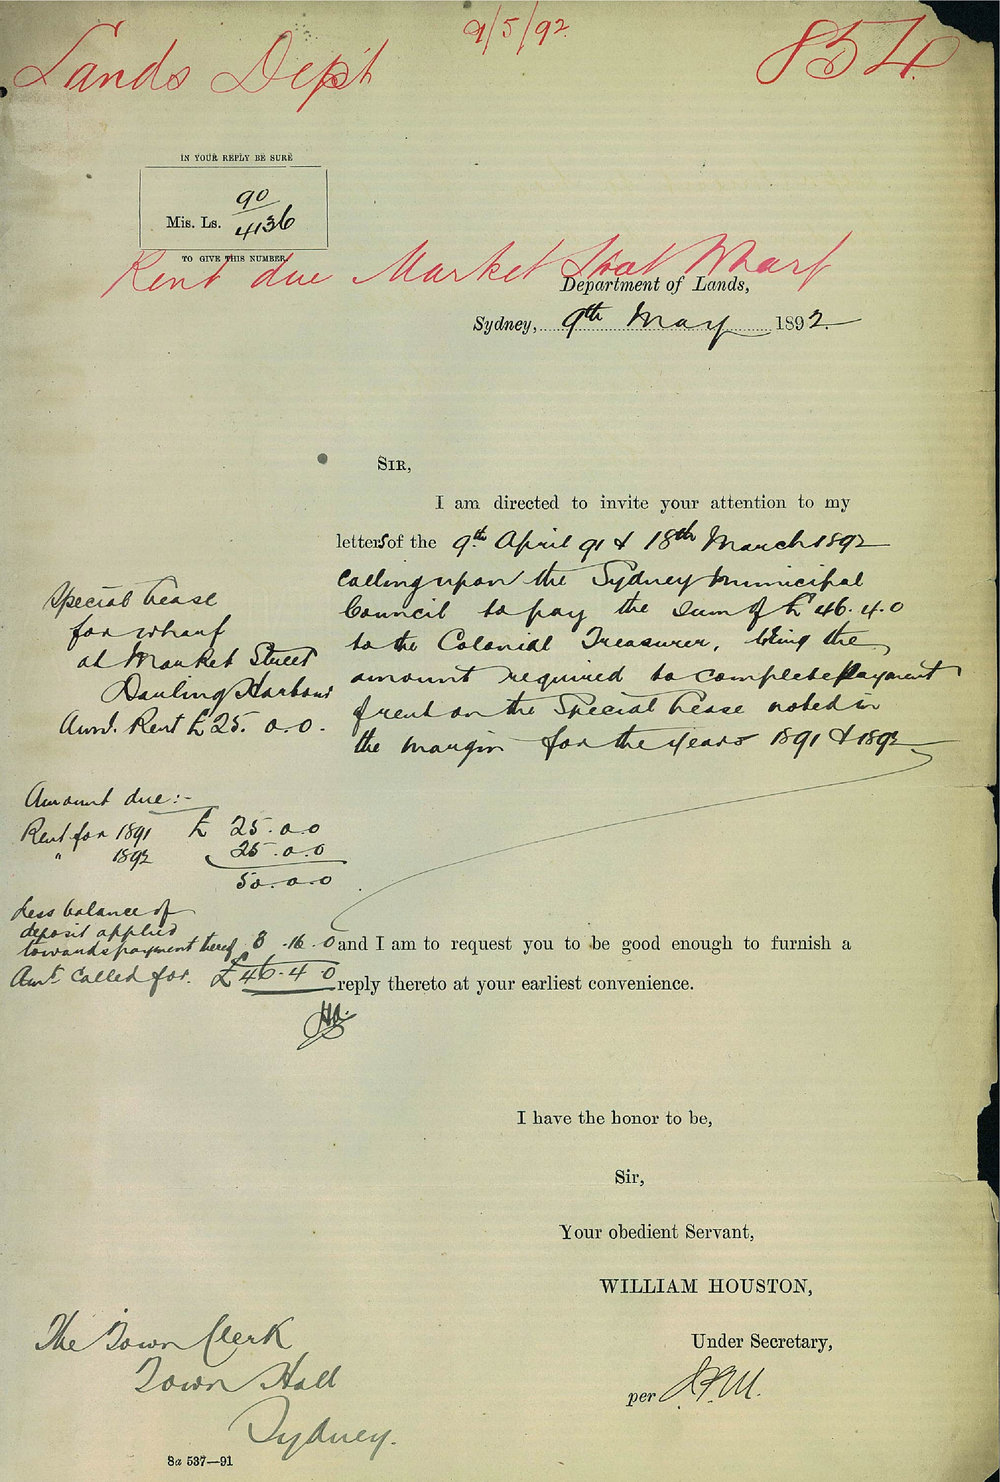 9/5/92
Lands Dep't
854
IN YOUR REPLY BE SURE
Mis. Ls. 90
4136
TO GIVE THIS NUMBER.
Rent due Market Street Wharf
Department of Lands,
Sydney, 9th May 1892.
SIR,
I am directed to invite your attention to my
letters of the 9th April 91 & 18th March 1892
calling upon the Sydney Municipal
Council to pay the sum of £46.4.0
to the Colonial Treasurer, being the
amount required to complete payment
of rent on the Special Lease noted in
the margin for the years 1891 & 1892
Special Lease
for wharf
at Market Street
Darling Harbour
Annl. Rent £25.0.0.
Amount due:-
Rent for 1891 £ 25.0.0
" 1892 25.0.0
50.0.0
Less balance of
deposit applied
towards payment thereof 3.16.0
Amt. called for. £46.4.0
and I am to request you to be good enough to furnish a
reply thereto at your earliest convenience.
I have the honor to be,
Sir,
Your obedient Servant,
WILLIAM HOUSTON,
Under Secretary,
per
The Town Clerk
Town Hall
Sydney.
8a 537—91